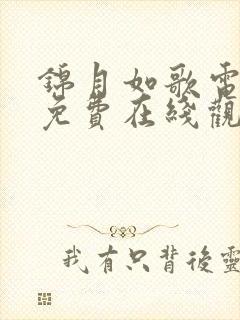 錦月如歌電
免費在綫觀
我有只背後靈